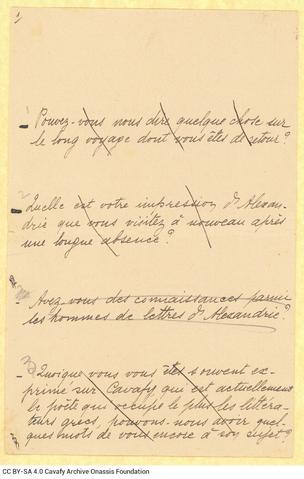 1/
1 Pouvez-vous nous dire quelque chose sur
le long voyage dont vous êtes de retour?
2 Quelle est votre impression d'Alexan-
drie que vous visitez à nouveau après
une longue absence?
- Avez-vous des connaissances parmi
les hommes de lettres d'Alexandrie?
3 Quoique vous vous êtes souvent ex-
primé sur Cavafy qui est actuellement
le poète qui occupe le plus les littéra-
teurs grecs, pouvons-nous avoir quel-
ques mots de vous encore à son sujet?
CC BY-SA 4.0 Cavafy Archive Onassis Foundation